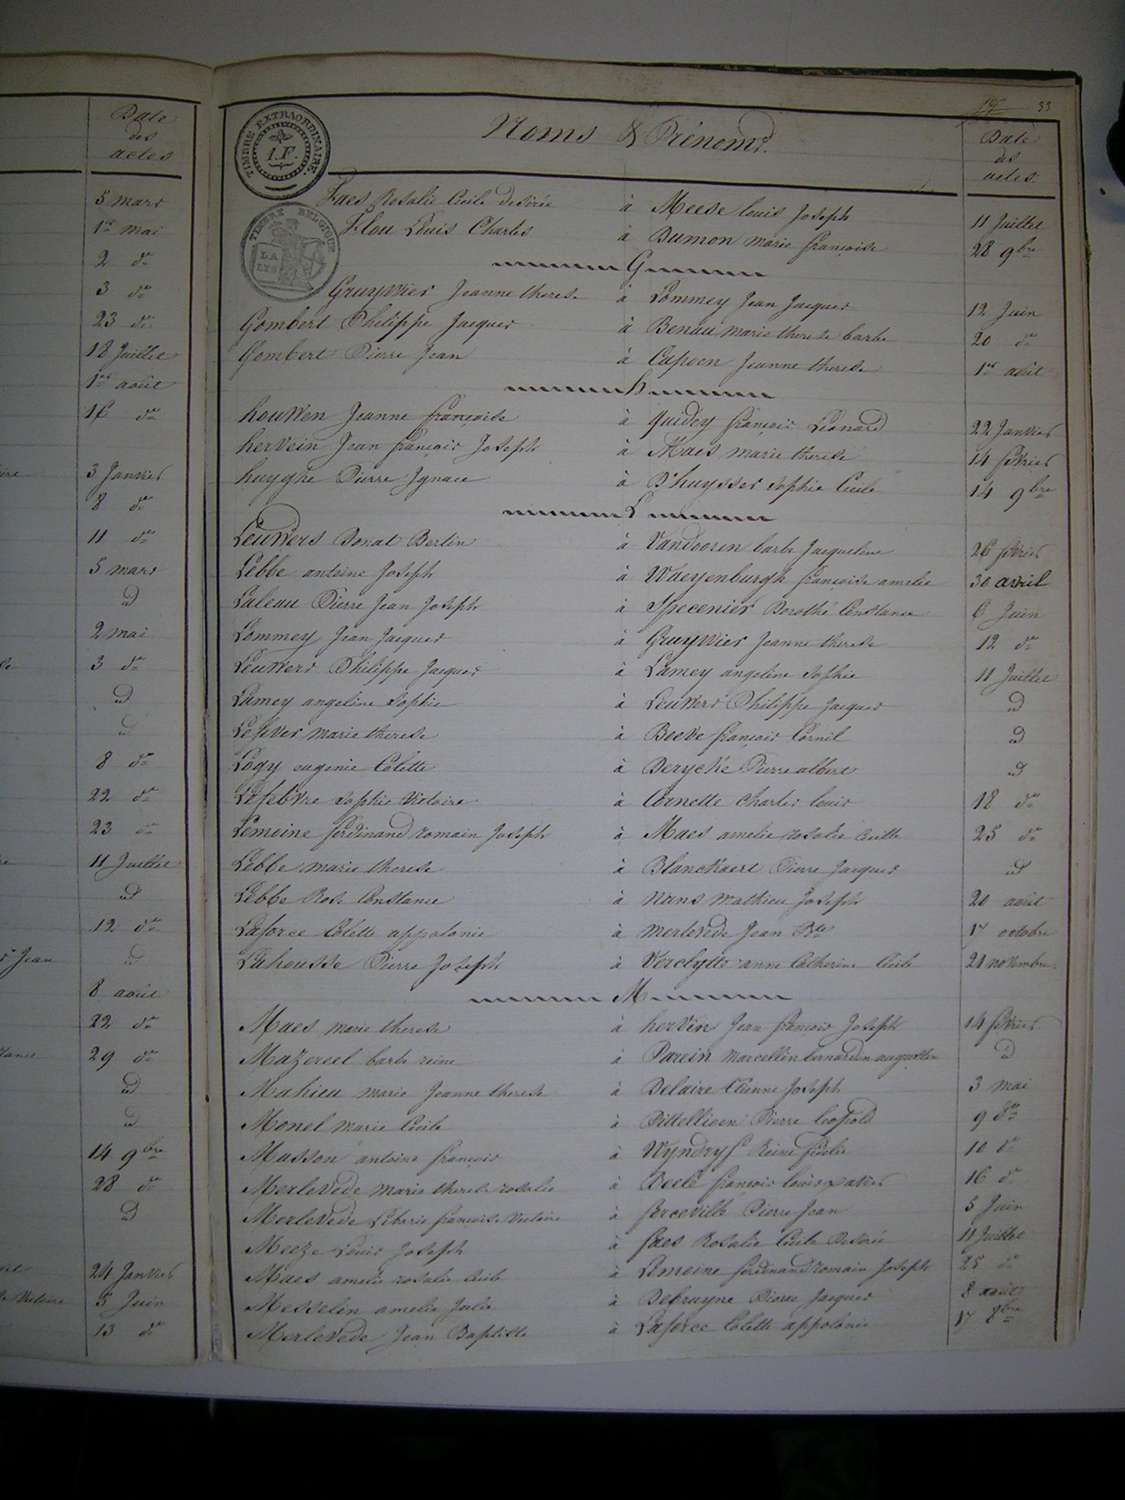 Date
des
actes
5 mars
1er mai
2 do
3 do
23 do
18 Juillet
1er août
16 do
3 Janvier
8 do
11 do
5 mars
id
2 mai
3 do
id
id
8 do
22 do
23 do
11 Juillet
id
12 do
Jean
id
8 août
22 do
29 do
id
id
14 9bre
28 do
id
24 Janvier
Victoire 5 Juin
13 do
33
TIMBRE EXTRAORDINAIRE
1.F.
TIMBRE BELGIQUE
LA
LYS
Noms & Prénoms.
Date
des
actes
Faes Rosalie Cécile désirée à Meese louis Joseph 11 Juillet
Flou Louis Charles à Dumon marie françoise 28 9bre
G
Gruywier Jeanne therese à Lommey Jean Jacques 12 Juin
Gombert Philippe Jacques à Benau marie therese barbe 20 do
Gombert Pierre Jean à Capoen Jeanne therese 1er août
H
houwen Jeanne françoise à Quidey françois Léonard 22 Janvier
hervein Jean françois Joseph à Maes marie therese 14 février
huyghe Pierre Ignace à D'huysser sophie Cecile 14 9bre
L
Leuwers Donat Bertin à Vandooren barbe Jacqueline 26 février
Lebbe antoine Joseph à Waeyenburgh françoise amelie 30 avril
Laleau Pierre Jean Joseph à Specenier Dorothé Constance 6 Juin
Lommey Jean Jacques à Gruywier Jeanne therese 12 do
Leuwers Philippe Jacques à Lamey angeline sophie 11 Juillet
Lamey angeline sophie à Leuwers Philippe Jacques id
Lepver marie therese à Boeve françois Cornil id
Logy eugenie Colette à Deryckè Pierre albert id
Lefebvre sophie Victoire à Cornette charles louis 18 do
Lemoine ferdinand romain Joseph à Maes amelie rosalie Cecile 25 do
Lebbe marie therese à Blanckaert Pierre Jacques id
Lebbe Rose Constance à Nans Mathieu Joseph 20 août
Laforce Colette appolonie à merlevede Jean Bte 17 octobre
Lahousse Pierre Joseph à Verclytte anne Catherine Cecile 21 novembre
M
Maes marie therese à hervin Jean françois Joseph 14 février
Mazereel barbe reine à Parein Marcellin bernardin augustin id
Mahieu marie Jeanne therese à Delaire Etienne Joseph 3 mai
Monel marie Cecile à Pittellioen Pierre leopold 9 do
Masson antoine françois à Wyndrys Reine Julie 10 do
Merlevede Marie therese rosalie à Deele françois louis xavier 16 do
Merlevede Liberie françoise Victoire à forceville Pierre Jean 5 Juin
Meeze Louis Joseph à faes Rosalie Cecile Desirée 11 Juillet
Maes amelie rosalie Cecile à Lemoine ferdinand romain Joseph 25 do
Messelin amelie Julie à Debruyne Pierre Jacques 8 août
Merlevede Jean Baptiste à Laforce Colette appolonie 17 8bre